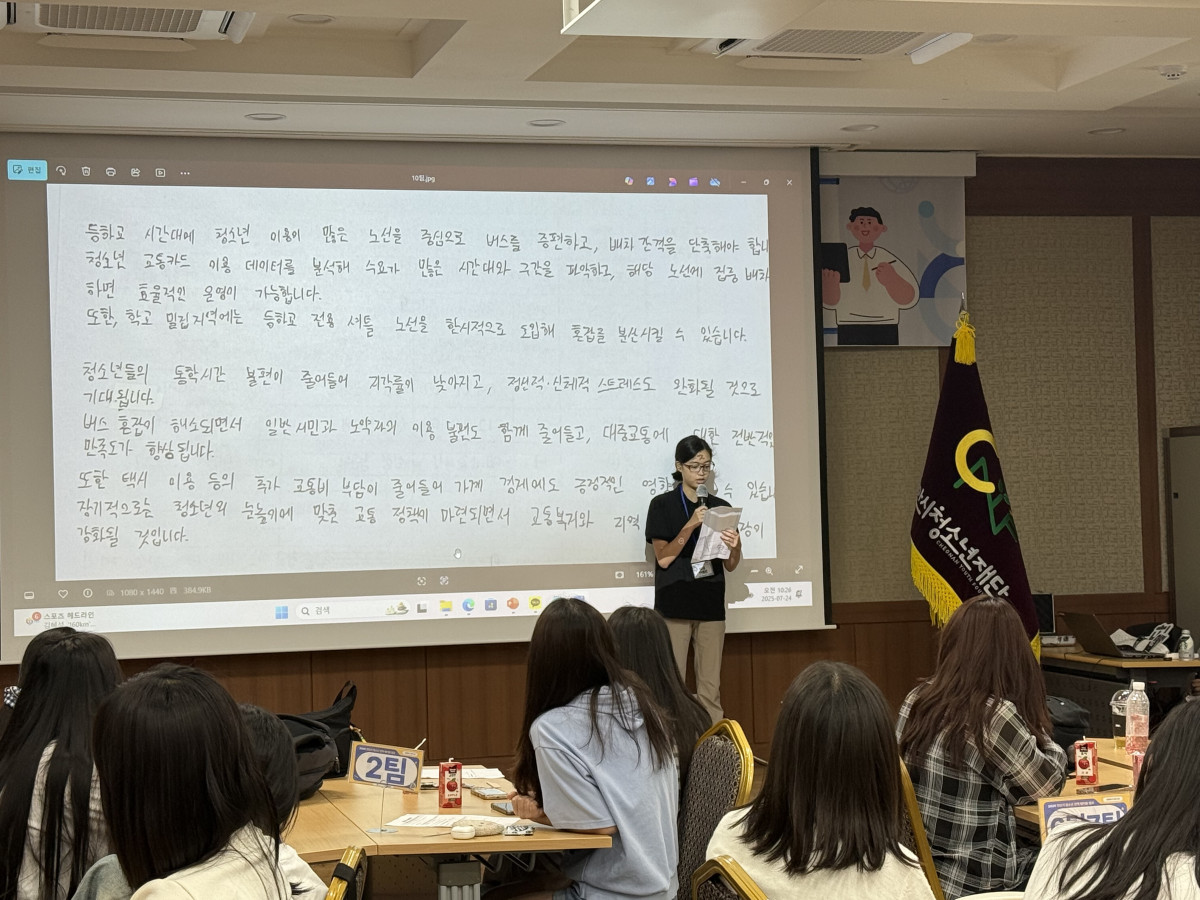 편집
10팀.jpg
등하교 시간대에 청소년 이용이 많은 노선을 중심으로 버스를 증편하고, 배차 간격을 단축해야 합니
청소년 교통카드 이용 데이터를 분석해 수요가 많은 시간대와 구간을 파악하고, 해당 노선에 집중 배차
하면 효율적인 운영이 가능합니다.
또한, 학교 밀집지역에는 등하교 전용 셔틀 노선을 한시적으로 도입해 혼잡를 분산시킬 수 있습니다.
청소년들의 통학시간 불편이 줄어들어 지각률이 낮아지고, 정신적·신체적 스트레스도 완화될 것으로
기대됩니다.
버스 혼잡이 해소되면서 일반시민과 노약자의 이용 불편도 함께 줄어들고, 대중교통에 대한 전반적인
만족도가 향상됩니다.
또한 택시 이용 등의 추가 교통비 부담이 줄어들어 가계 경제에도 긍정적인 영향 수 있습니
장기적으로는 청소년의 눈높이에 맞춘 교통 정책이 마련되면서 교통복지와 지역
강화될 것입니다.
1080 x 1440 384.9KB
161%
스포츠 헤드라인
검색
오전 10:26
2025-07-24
시청소년재단
2팀